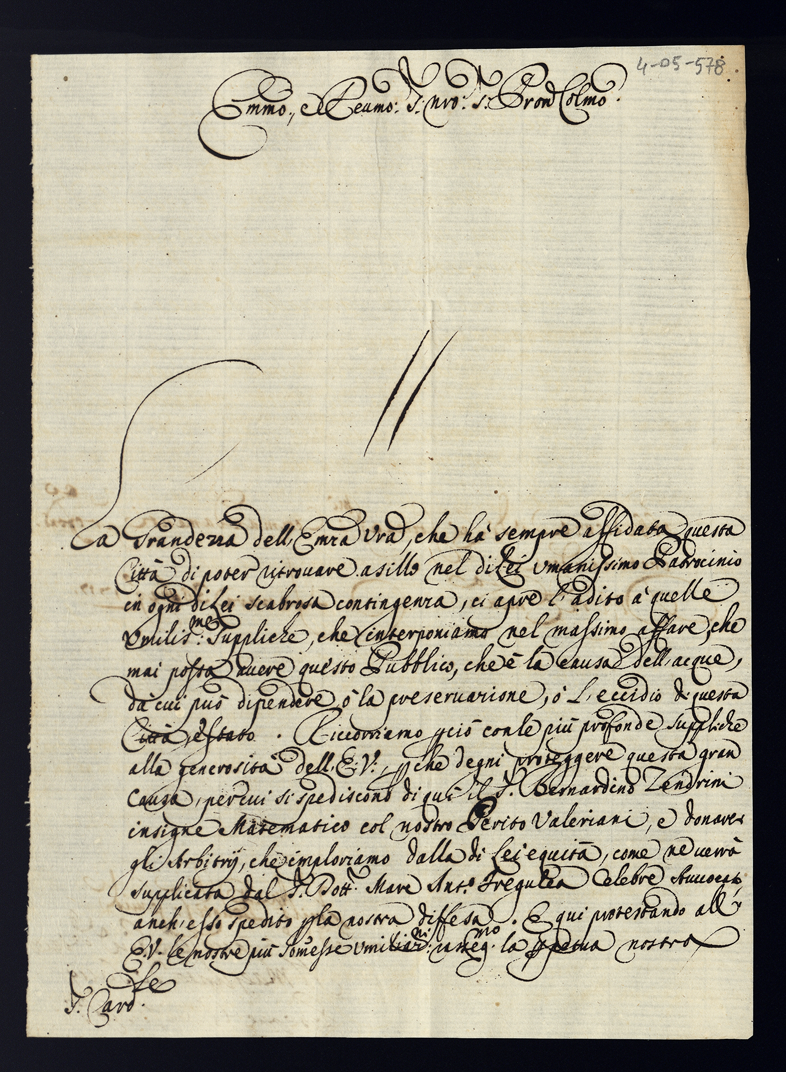 4-05-578
Emmo., e Reumo: S. nro: S. Pron Colmo.
La Grandezza dell'Emza Vra, che hà sempre affidata questa
Città di poter ritrouare asillo nel di Lei vmanissimo Patrocinio
in ogni di Lei scabrosa contingenza, ci apre l'adito à quelle
vmiliss.me Suppliche, che interponiamo nel massimo affare, che
mai possa auere questo Pubblico, che è la causa dell'acque,
dà cui può dipendere ò la preseruazione, ò L'eccidio di questa
Città, e stato. Ricorriamo pciò con le più profonde suppliche
alla generosità dell'E.V., che degni proteggere questa gran
Causa, per cui si spediscono di quì il S. Bernardino Zendrini
insigne Matematico col nostro Perito Valeriani, e donare
gli Arbitrÿ, che imploriamo dalla di Lei equità, come ne uerrà
supplicata dal S. Dott. Marc Ant.o Fregulia Celebre Auuocato,
anch'esso spedito p la nostra diffesa. E qui protestando all'
E.V. le nostre più somesse vmiliaz.ni rasseg.mo la ppetua nostra
S. Card.le